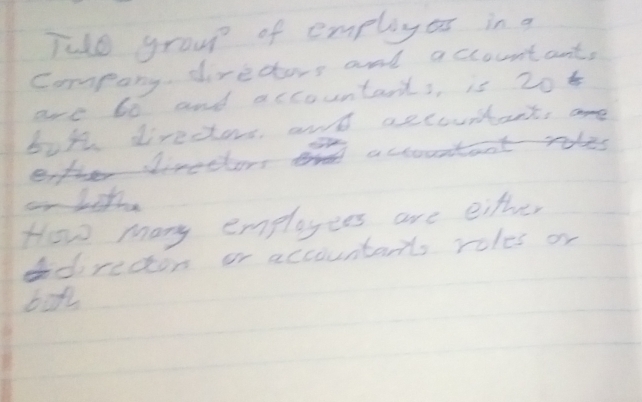 Two group of employes in a
company. directors and accountants
are 60 and accountants, is 20
both directors and accountants are
either directors and accountant roles
or bothe
How many employees are either
director or accountants roles or
both